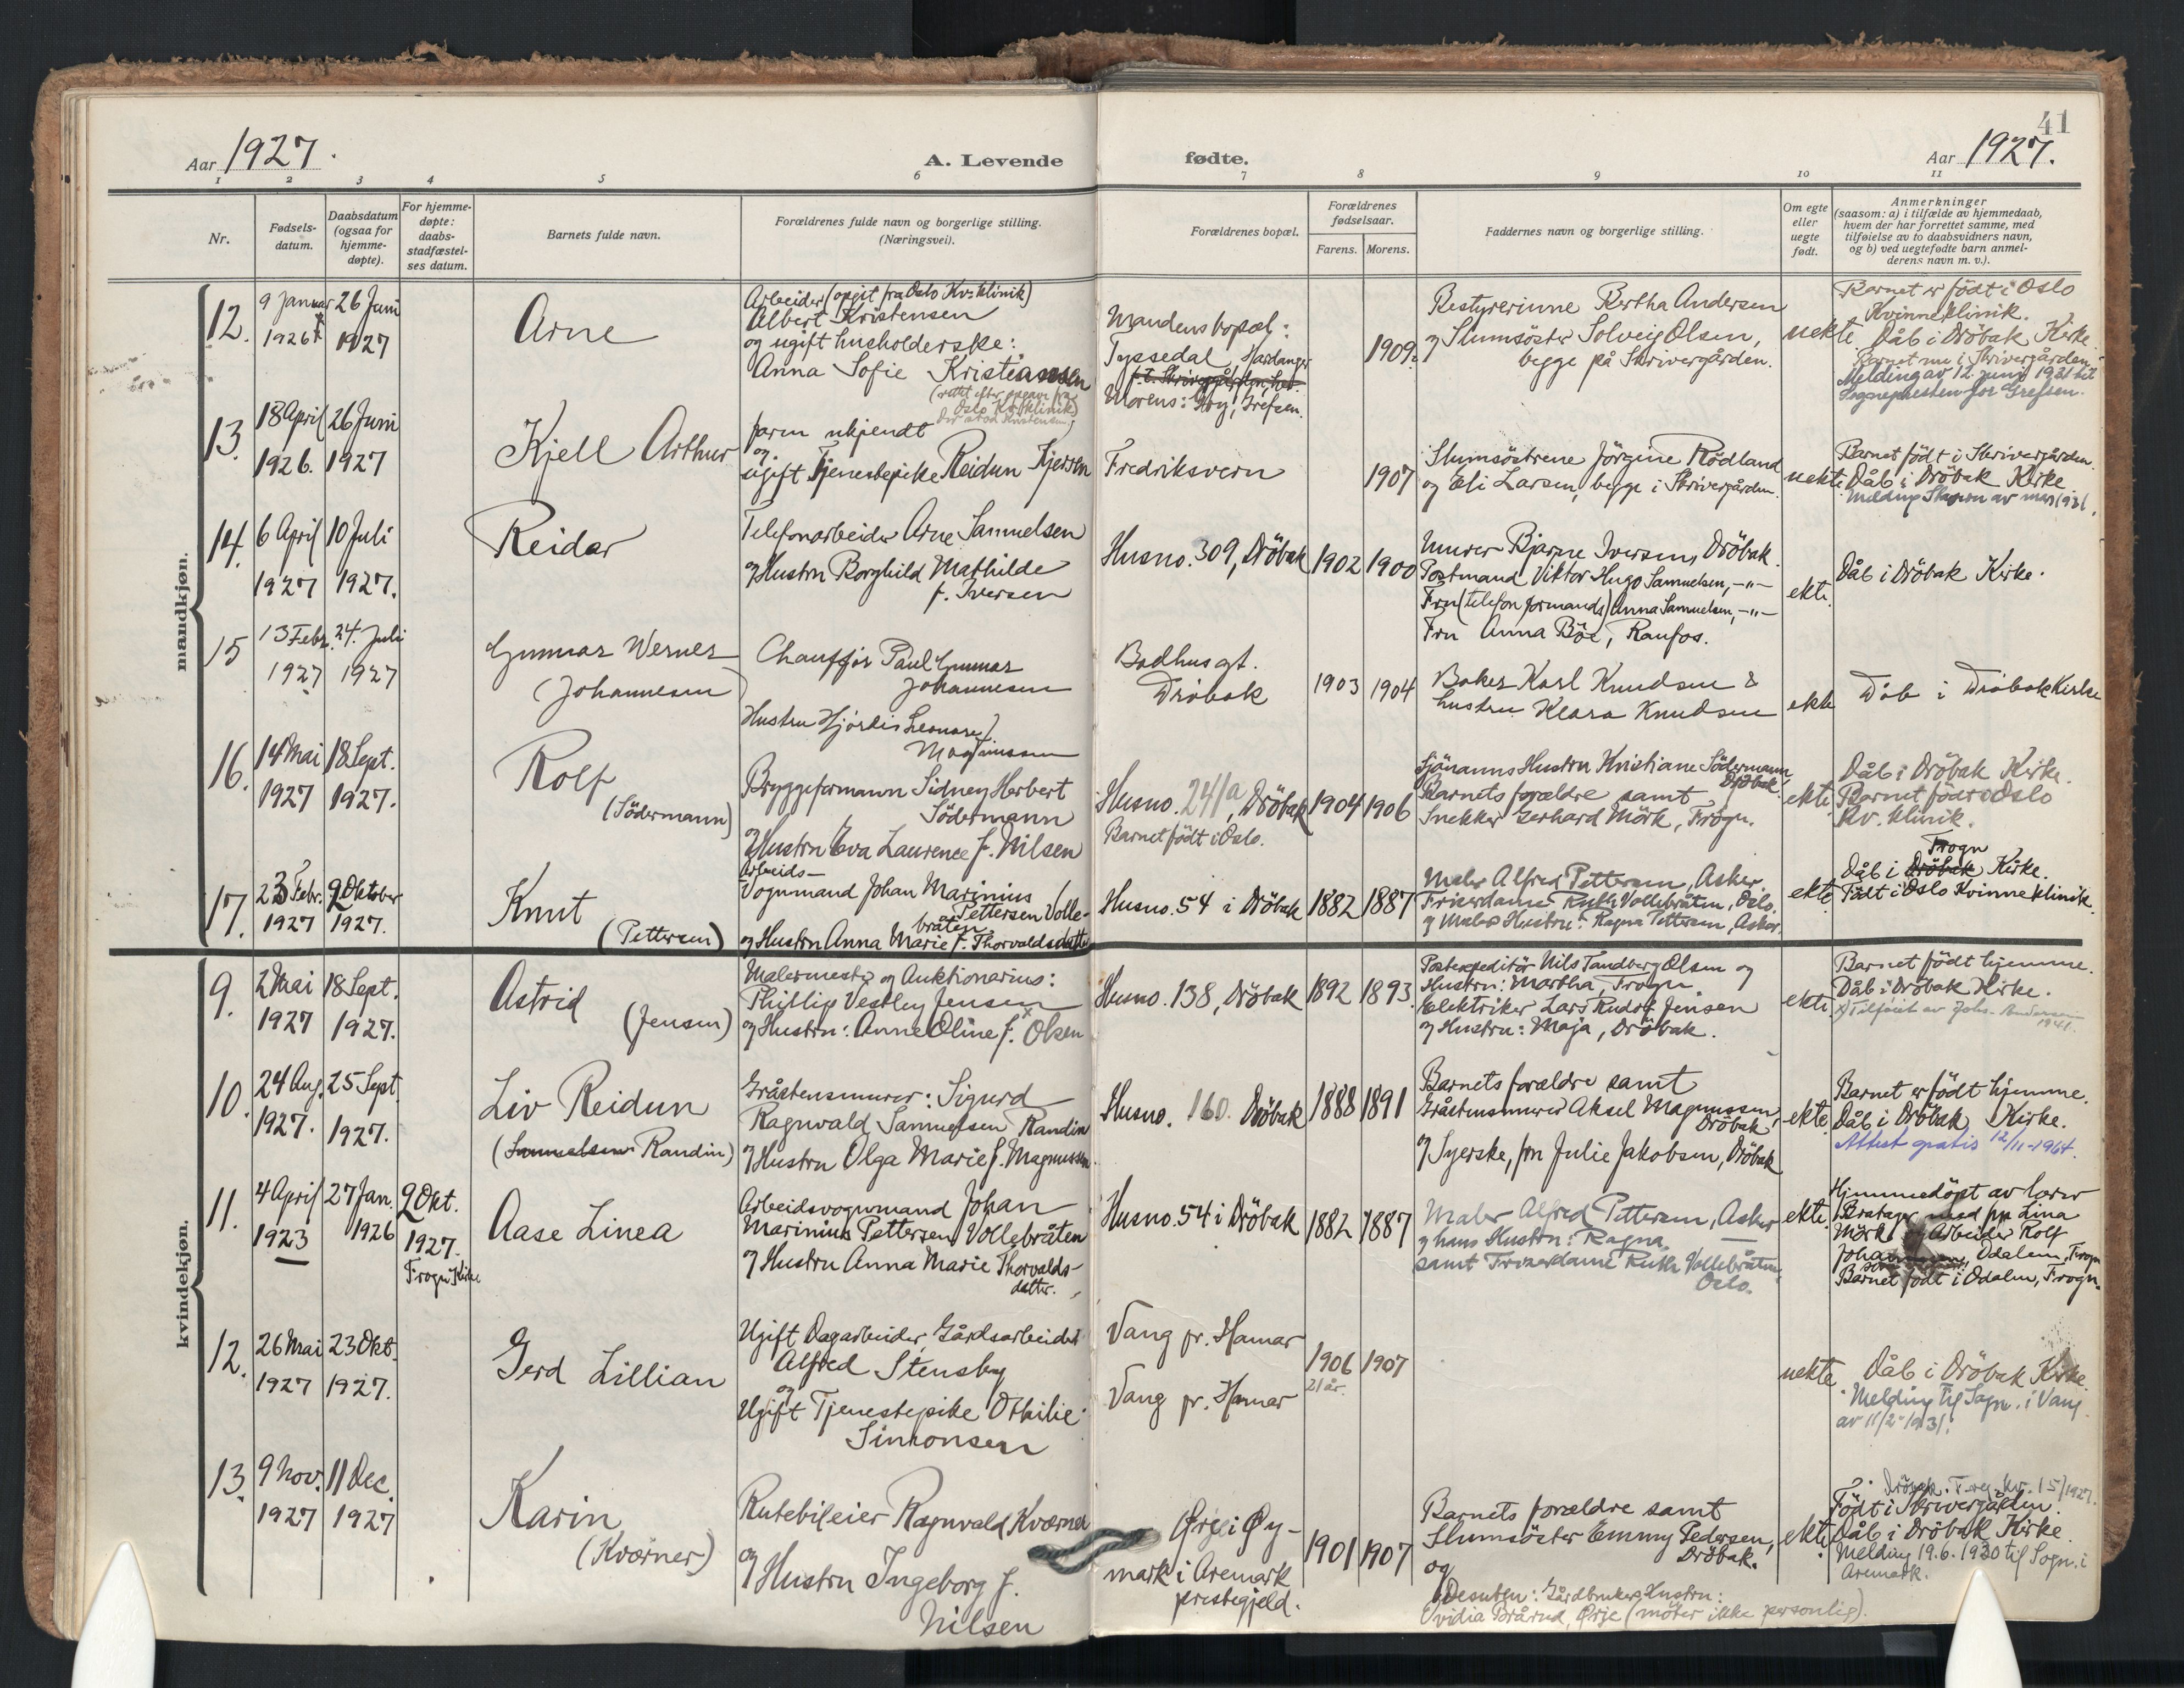 41
Aar 1927.
A. Levende
fødte.
Aar 1927.
1 2 3 4 5 6 7 8 9 10 11
Nr.
Fødsels-
datum.
Daabsdatum
(ogsaa for
hjemme-
døpte).
For hjemme-
døpte:
daabs-
stadfæstel-
ses datum.
Barnets fulde navn.
Forældrenes fulde navn og borgerlige stilling.
(Næringsvei).
Forældrenes bopæl.
Forældrenes
fødselsaar.
Farens. Morens.
Faddernes navn og borgerlige stilling.
Om egte
eller
uegte
født.
Anmerkninger
(saasom: a) i tilfælde av hjemmedaab,
hvem der har forrettet samme, med
tilføielse av to daabsvidners navn,
og b) ved uegtefødte barn anmel-
derens navn m. v.).
mandkjøn.
12.
9 Januar
1926
26 Juni
1927
Arne
Arbeider (opgit fra Oslo Kv.klinik)
Albert Kristensen
og ugift husholderske:
Anna Sofie Kristiansen
(rettet efter opgave fra
Oslo Kv.klinik)
Mandens bopæl:
Tyssedal, Hardanger
Morens: Grefsen.
1909.
Bestyrerinne Bertha Andersen
og Slumsöster Solveig Olsen,
begge på Skrivergården.
uekte
Barnet er födt i Oslo
Kvinneklinik.
Dåb i Dröbak Kirke.
Barnet nu i Skrivergården
Melding av 12 juni 1931 til
Sognepresten for Grefsen.
13.
18 April
1926.
26 Juni
1927
Kjell Arthur
Faren ukjendt
og
ugift Tjenestepike Reidun
Fredriksvern
1907
Slumsöstrene Jörgine Rödland
og Eli Larsen, begge i Skrivergården.
uekte
Barnet födt i Skrivergården.
Dåb i Dröbak Kirke.
14.
6 April
1927
10 Juli
1927.
Reidar
Telefonarbeider Arne Samuelsen
og Hustru Borghild Mathilde
f. Iversen
Husno. 309, Dröbak
1902
1900
Murer Bjarne Iversen, Dröbak.
Postmand Viktor Hugo Samuelsen, -"-
Fru (telefonformands) Anna Samuelsen, -"-
Fru Anna Böe, Raufos.
ekte.
Dåb i Dröbak Kirke.
15
13 Febr.
1927
24. Juli
1927
Gunnar Werner
(Johannesen)
Chauffør Paul Gunnar
Johannesen
Hustru Hjördis
Magnussen
Badhusgt.
Drøbak
1903
1904
Baker Karl Knudsen &
hustru Klara Knudsen
ekte
Dåb i Drøbak Kirke
16.
14 Mai
1927
18 Sept.
1927.
Rolf
(Södermann)
Bryggeformann Sidney Herbert
Södermann
og Hustru Eva Laurence f. Nilsen
Husno. 241/a, Dröbak
Barnet født i Oslo.
1904
1906
Sjömanns Hustru Kristiane Södermann,
Dröbak.
Barnets forældre samt
Snekker Gerhard Mörk, Frogn.
ekte.
Dåb i Dröbak Kirke.
Barnet født i Oslo
Kv. klinik.
17.
23 Febr.
1927
9 Oktober
1927.
Knut
(Pettersen)
Arbeids-
Vognmand Johan Marinius
Pettersen Volle-
bråten
og Hustru Anna Marie f. Thorvaldsdatter
Husno. 54 i Dröbak
1882
1887
Maler Alfred Pettersen, Asker.
Friserdame Ruth Vollebråten, Oslo.
og Malers Hustru: Ragna Pettersen, Asker.
ekte.
Frogn
Dåb i Dröbak Kirke.
Födt i Oslo Kvinneklinik.
kvindekjøn.
9.
2 Mai
1927
18 Sept.
1927.
Astrid
(Jensen)
Malermester og Auktionarius:
Phillip Vestley Jensen
og Hustru: Anne Oline f. Olsen
Husno. 138, Dröbak
1892
1893.
Postexpeditör Nils Tandberg Olsen og
Hustru: Martha, Frogn.
Elektriker Lars Rudolf Jensen
og Hustru: Maja, Dröbak.
ekte.
Barnet födt hjemme.
Dåb i Dröbak Kirke.
x) Tilföiet av Johs. Andersen
1941.
10.
24 Aug.
1927.
25 Sept.
1927.
Liv Reidun
(Samuelsen Randin)
Gråstensmurer: Sigurd
Ragnvald Samuelsen Randin
og Hustru Olga Marie f. Magnussen.
Husno. 160. Dröbak
1888
1891
Barnets forældre samt
Gråstensmurer Aksel Magnussen,
Dröbak
og Syerske, fru Julie Jakobsen, Dröbak
ekte.
Barnet er födt hjemme.
Dåb i Dröbak Kirke.
Attest gratis 12/11-1964.
11.
4 April
1923
27 Jan.
1926
9 Okt.
1927.
Frogn Kirke
Aase Linea
Arbeidsvognmand Johan
Marinius Pettersen Vollebråten
og Hustru Anna Marie Thorvalds-
datter.
Husno. 54 i Dröbak
1882
1887
Maler Alfred Pettersen, Asker
og hans Hustru: Ragna,
samt Friserdame Ruth Vollebråten,
Oslo.
ekte.
Hjemmedöpt av lærer
Lina
Mörk og Arbeider Rolf
Odalen, Frogn
Barnet födt i Odalen, Frogn.
12.
26 Mai
1927
23 Okt.
1927.
Gerd Lillian
Ugift Dagarbeider, Gårdsarbeider
Alfred Stensby
og
Ugift Tjenestepike Othilie
Simonsen
Vang pr. Hamar
Vang pr. Hamar
1906
21 år.
1907
uekte
Dåb i Dröbak Kirke.
Melding til Sogn. i Vang
av 11/2-1931.
13.
9 Nov.
1927
11 Dec.
1927
Karin
(Kværner)
Rutebileier Ragnvald Kværner
og
Hustru Ingeborg f.
Nilsen
Ørje i Øy-
mark i Aremark
prestegjeld.
1901
1907
Barnets forældre samt
Slumsöster Emmy Pedersen,
Dröbak.
og
Desuten: Gårdbruker Hustru:
Ovidia Brårud, Ørje (möter ikke personlig).
ekte.
Födt i Skrivergården.
Dåb i Dröbak Kirke.
Melding 19.6.1930 til Sogn. i
Aremark.